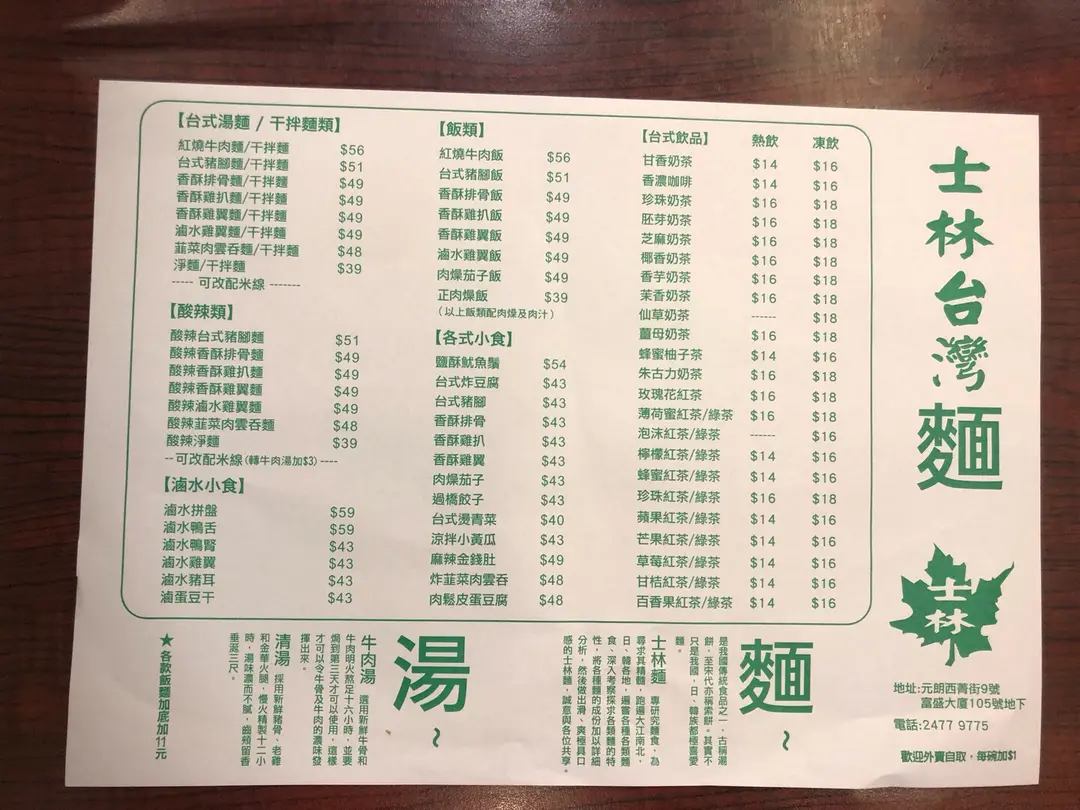 【台式湯麵 / 干拌麵類】
紅燒牛肉麵/干拌麵 $56
台式豬腳麵/干拌麵 $51
香酥排骨麵/干拌麵 $49
香酥雞扒麵/干拌麵 $49
香酥雞翼麵/干拌麵 $49
滷水雞翼麵/干拌麵 $49
韮菜肉雲吞麵/干拌麵 $48
淨麵/干拌麵 $39
----- 可改配米線 -------
【酸辣類】
酸辣台式豬腳麵 $51
酸辣香酥排骨麵 $49
酸辣香酥雞扒麵 $49
酸辣香酥雞翼麵 $49
酸辣滷水雞翼麵 $49
酸辣韮菜肉雲吞麵 $48
酸辣淨麵 $39
--可改配米線(轉牛肉湯加$3)----
【滷水小食】
滷水拼盤 $59
滷水鴨舌 $59
滷水鴨腎 $43
滷水雞翼 $43
滷水豬耳 $43
滷蛋豆干 $43
【飯類】
紅燒牛肉飯 $56
台式豬腳飯 $51
香酥排骨飯 $49
香酥雞扒飯 $49
香酥雞翼飯 $49
滷水雞翼飯 $49
肉燥茄子飯 $49
正肉燥飯 $39
(以上飯類配肉燥及肉汁)
【各式小食】
鹽酥魷魚鬚 $54
台式炸豆腐 $43
台式豬腳 $43
香酥排骨 $43
香酥雞扒 $43
香酥雞翼 $43
肉燥茄子 $43
過橋餃子 $43
台式燙青菜 $40
涼拌小黃瓜 $43
麻辣金錢肚 $49
炸韮菜肉雲吞 $48
肉鬆皮蛋豆腐 $48
【台式飲品】 熱飲 凍飲
甘香奶茶 $14 $16
香濃咖啡 $14 $16
珍珠奶茶 $16 $18
胚芽奶茶 $16 $18
芝麻奶茶 $16 $18
椰香奶茶 $16 $18
香芋奶茶 $16 $18
茉香奶茶 $16 $18
仙草奶茶 ------ $18
薑母奶茶 $16 $18
蜂蜜柚子茶 $14 $16
朱古力奶茶 $16 $18
玫瑰花紅茶 $16 $18
薄荷蜜紅茶/綠茶 $16 $18
泡沫紅茶/綠茶 ------ $16
檸檬紅茶/綠茶 $14 $16
蜂蜜紅茶/綠茶 $14 $16
珍珠紅茶/綠茶 $16 $18
蘋果紅茶/綠茶 $14 $16
芒果紅茶/綠茶 $14 $16
草莓紅茶/綠茶 $14 $16
甘桔紅茶/綠茶 $14 $16
百香果紅茶/綠茶 $14 $16
士林台灣麵
士林
地址:元朗西菁街9號
富盛大廈105號地下
電話:2477 9775
歡迎外賣自取，每碗加$1
麵~
是我國傳統食品之一，古稱湯
餅，至宋代亦稱索餅。其實不
只是我國，日、韓族都極喜愛
麵。
士林麵 專研究麵食，為
尋求其精髓，跑遍大江南北，
日、韓各地，遍嘗各種各類麵
食、深入考察探求各類麵的特
性，將各種麵的成份加以詳細
分析，然後做出滑、爽極具口
感的士林麵，誠意與各位共享。
湯~
牛肉湯 選用新鮮牛骨和
牛肉明火熬足十六小時，並要
焗到第三天才可以使用，這樣
才可以令牛骨及牛肉的濃味發
揮出來。
清湯 採用新鮮豬骨、老雞
和金華火腿，慢火精製十二小
時，湯味濃而不膩，齒頰留香
垂涎三尺。
★各款飯麵加底加11元